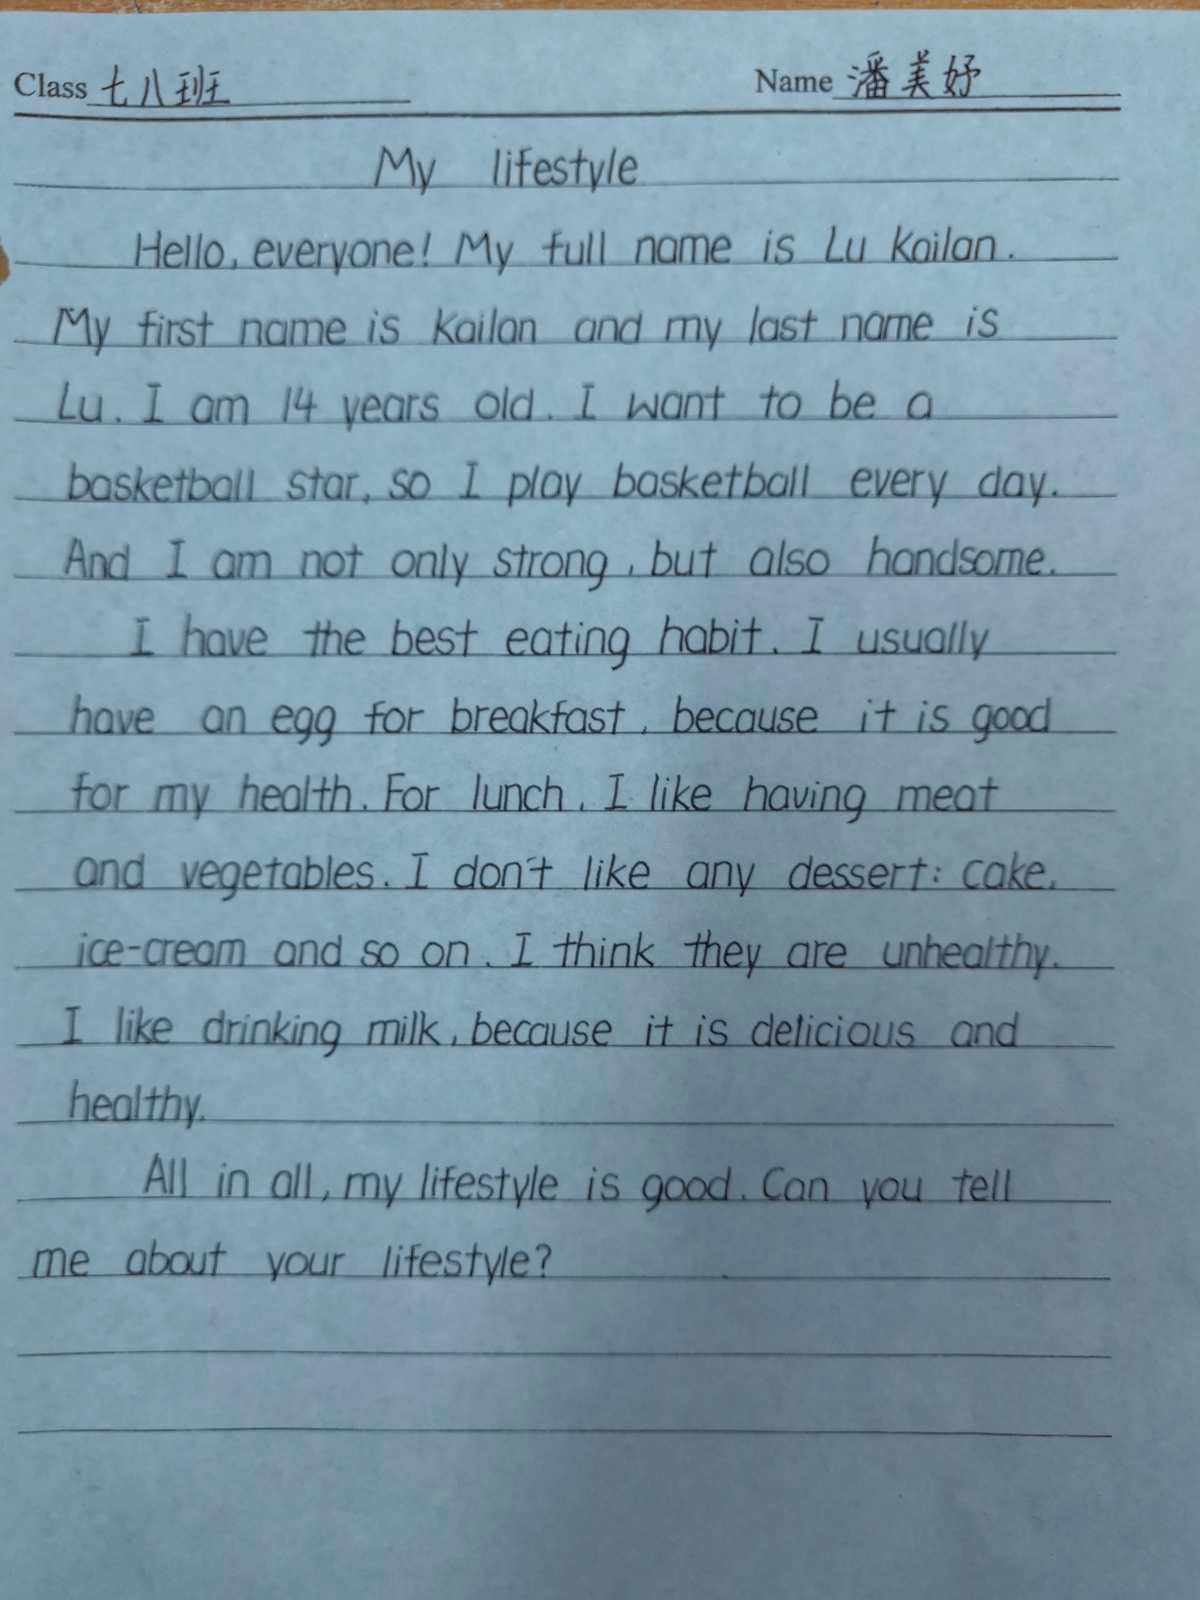 Class 七八班 Name 潘美妤
My lifestyle
Hello, everyone! My full name is Lu Kailan.
My first name is Kailan and my last name is
Lu. I am 14 years old. I want to be a
basketball star, so I play basketball every day.
And I am not only strong, but also handsome.
I have the best eating habit. I usually
have an egg for breakfast, because it is good
for my health. For lunch, I like having meat
and vegetables. I don't like any dessert: cake,
ice-cream and so on. I think they are unhealthy.
I like drinking milk, because it is delicious and
healthy.
All in all, my lifestyle is good. Can you tell
me about your lifestyle?